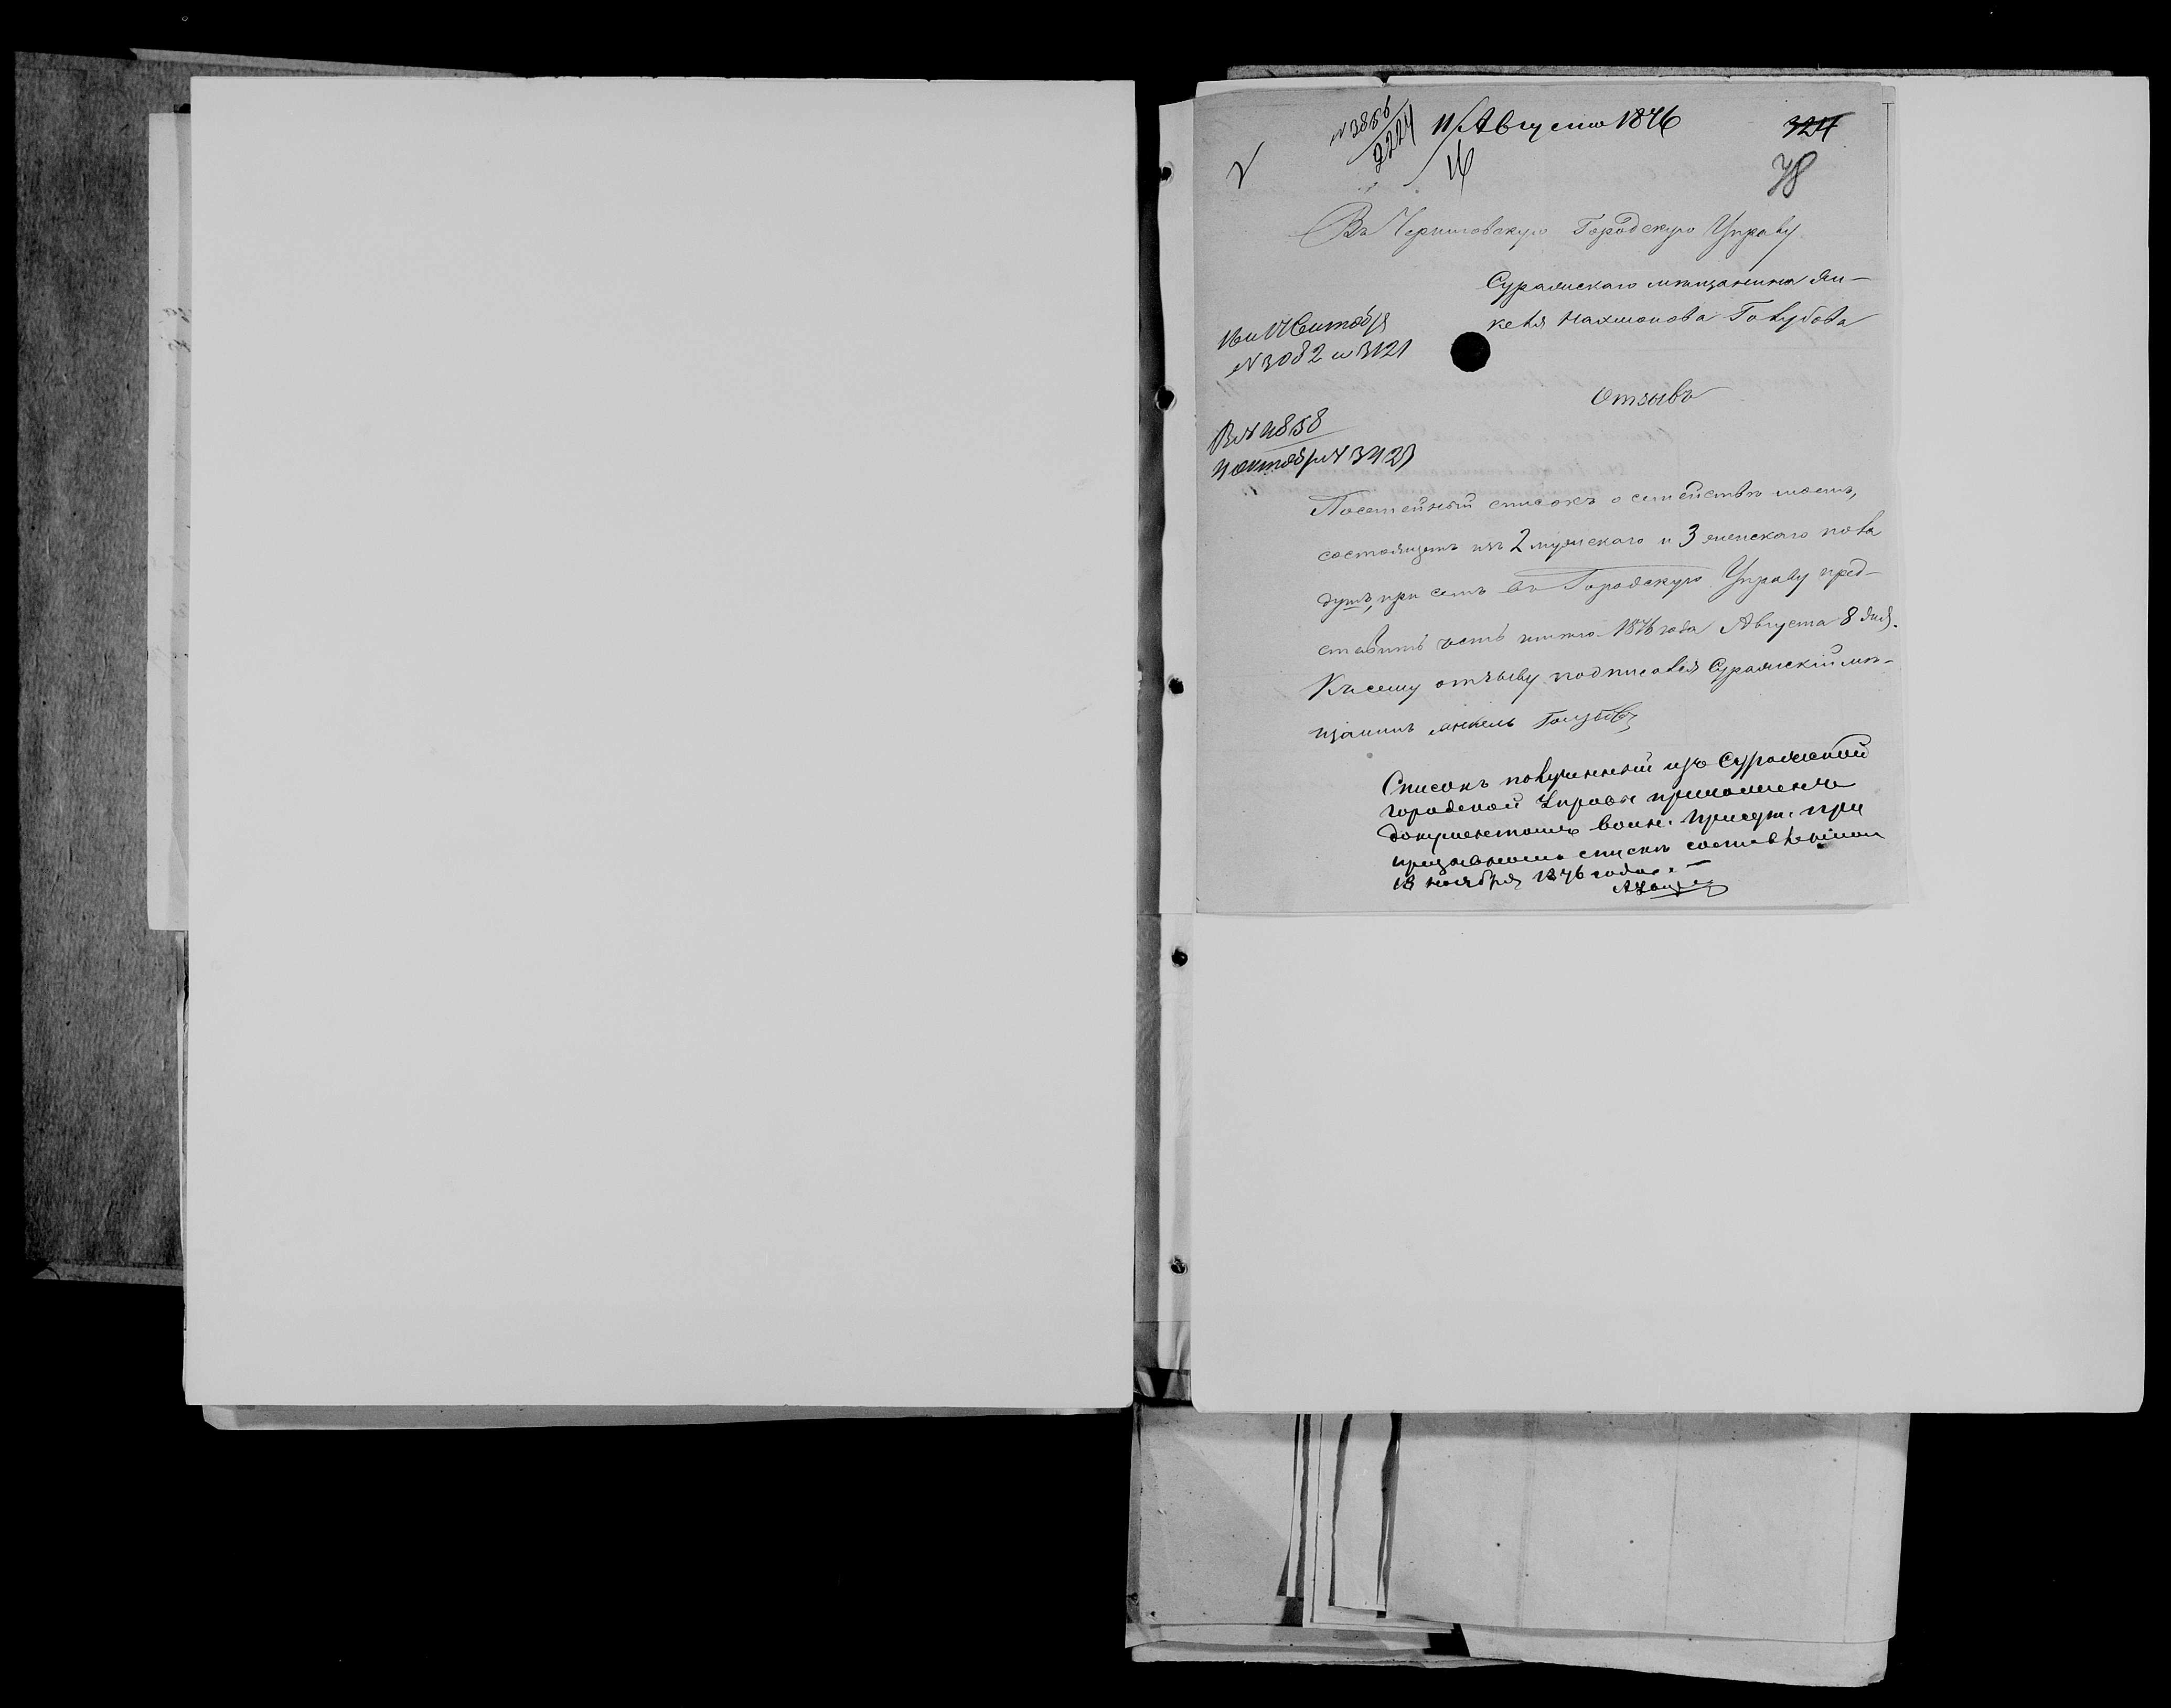 № 3856
2224
11 Августа 1876
16
324
78
Въ Черниговскую Городскую Управу
Суражскаго мѣщанина Ян-
келя Нахманова Голубова
16 и 17 Сентября
№ 3082 и 3121
Отзывъ
Вх № 4858
4 октября № 3423
Посемейный списокъ о семействѣ моемъ,
состоящемъ изъ 2 мужескаго и 3 женскаго пола
душъ, при семъ въ Городскую Управу пред-
ставить честь имѣю 1876 года Августа 8 дня.
Къ сему отзыву подписался Суражскій мѣ-
щанинъ Янкель Голубовъ
Списокъ полученный изъ Суражской
городской Управы приложенъ
документамъ воин. Присут. при
призывномъ спискѣ составленномъ
18 ноября 1876 года